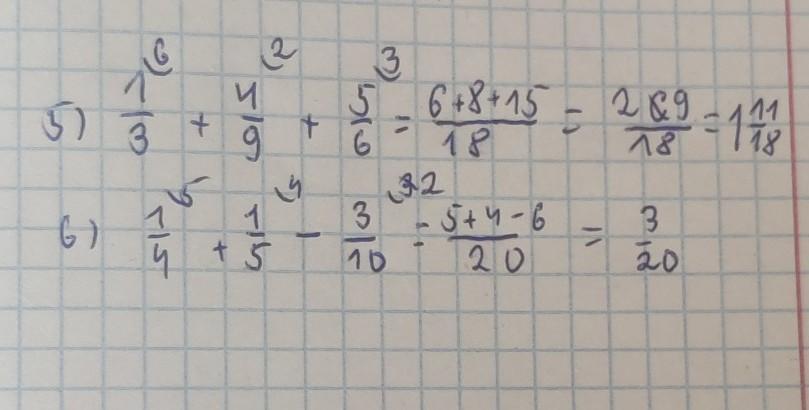 5) 1/3 ⁶ + 4/9 ² + 5/6 ³ = 6+8+15/18 = 29/18 = 1 11/18
6) 1/4 ⁵ + 1/5 ⁴ - 3/10 ² = 5+4-6/20 = 3/20